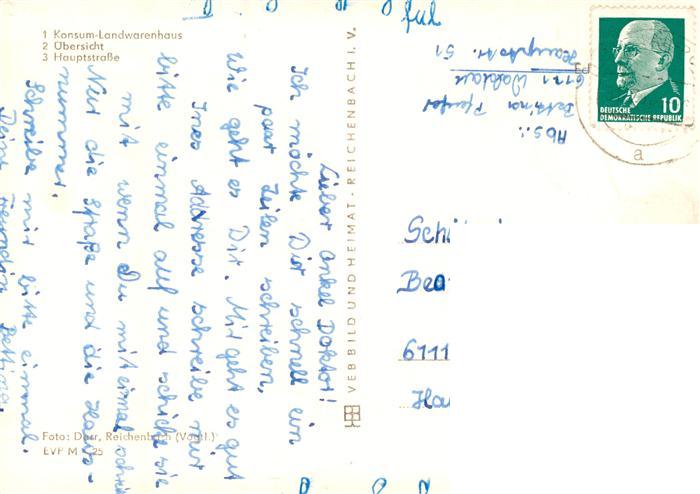 1 Konsum-Landwarenhaus
2 Übersicht
3 Hauptstraße
Lieber Onkel Doktor!
Ich möchte Dir schnell ein
paar Zeilen schreiben,
Wie geht es Dir. Mir geht es gut
Ines Addresse schreibe mir
bitte einmal auf und schicke sie
mit wenn Du mir einmal schrei
Nur die Straße und die Haus-
nummer.
Schreibe mir bitte einmal.
Deine Freundin Bettina.
VEB BILD UND HEIMAT · REICHENBACH I. V.
Abs.: Bettina
6111 Waldau
Hauptstr. 51
DEUTSCHE
DEMOKRATISCHE REPUBLIK
10
a
Schi
Bea
6111
Ha
Foto: Darr, Reichenbach (Vogtl.)
EVP M 25